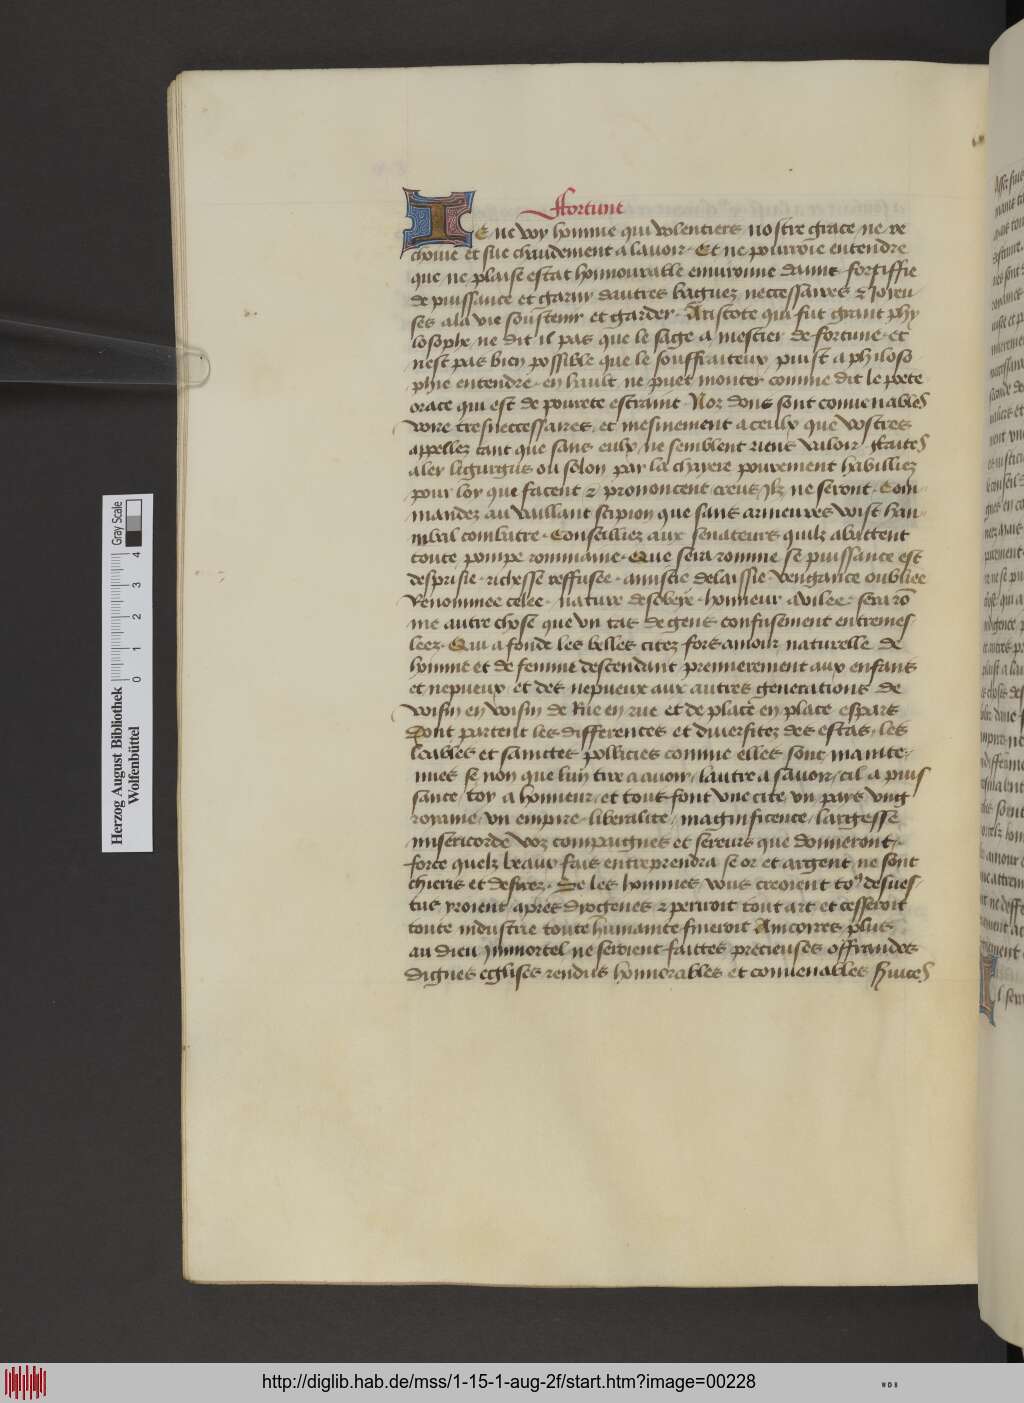 Ffortune
IE ne voy homme qui volentiers nostre grace ne re
choiue et sue chaudement a lauoir. Et ne pourroie entendre
que ne plaise estat honnourable enuironne damis. fortiffie
de puissance et garny dautres bagues neccessaires & ioyeu
ses a la vie soustenir et garder. Aristote qui fut grant phy
losophe, ne dit il pas que le sage a mestier de fortune. et
nest pas bien possible que le souffraiteux puist a philoso
phie entendre. en hault ne puet monter comme dit le poete
orace qui est de pourete estraint. Noz dons sont conuenables
voire tresneccessaires, et mesmement a ceulx que vostres
appellez tant que sans eulx, ne semblent riens valoir. ffaites
aler ligurgus ou solon par la chayere pourement habilliez
pour loy que facent & prononcent creus ilz ne seront. Com
mandez au vaillant scipion que sans armeures voist han
nibal combatre. Conseilliez aux senateurs quilz abattent
toute pompe rommaine. Que sera romme se puissance est
desprisie. richesse reffusee. amistie delaissie. vengance oubliee
Renommee celee. nature desobeye. honneur auilee. sera rō
me autre chose que vn tas de gens confusement entremes
leez. Qui a fonde les belles citez fors amour naturelle de
homme et de femme descendant premierement aux enfans
et nepueux et des nepueux aux autres generations de
voisin en voisin de Rue en rue et de place en place espars
Dont partent les differences et diuersitez des estas, les
loables et sainctes pollicies comme elles sont mainte,
nues se non que lun tire a auoir, lautre a sauoir, cil a puis
sance, toy a honneur, et tout font vne cite, vn pays vng
royame, vn empire. liberalite, magnificence, largesse
misericorde voz compaignes et sereurs que donneront,
force quelz beaux fais entreprendra se or et argent ne sont
chieris et desirez. Se les hommes vous creoient to9 desues,
tus yroient apres dyogenes & periroit tout art et cesseroit
toute industrie toute humanite fineroit Aincoires plus
au dieu immortel ne seroient faittes precieuses offrandes
dignes eglises rendus honnorables et conuenables seruices
Herzog August Bibliothek
Wolfenbüttel
Gray Scale
0 1 2 3 4
http://diglib.hab.de/mss/1-15-1-aug-2f/start.htm?image=00228
WDB